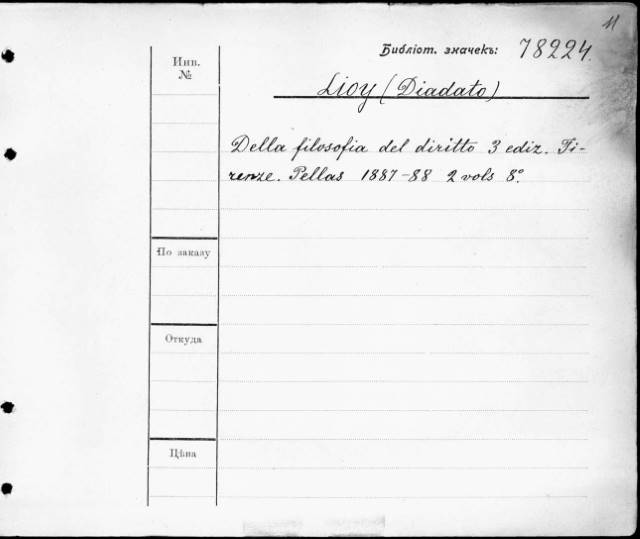 11
Библіот. значекъ: 78224.
Инв.
№
Lioy (Diadato)
Della filosofia del diritto 3 ediz. Fi-
renze. Pellas 1887-88 2 vols 8°.
По заказу
Откуда
Цѣна